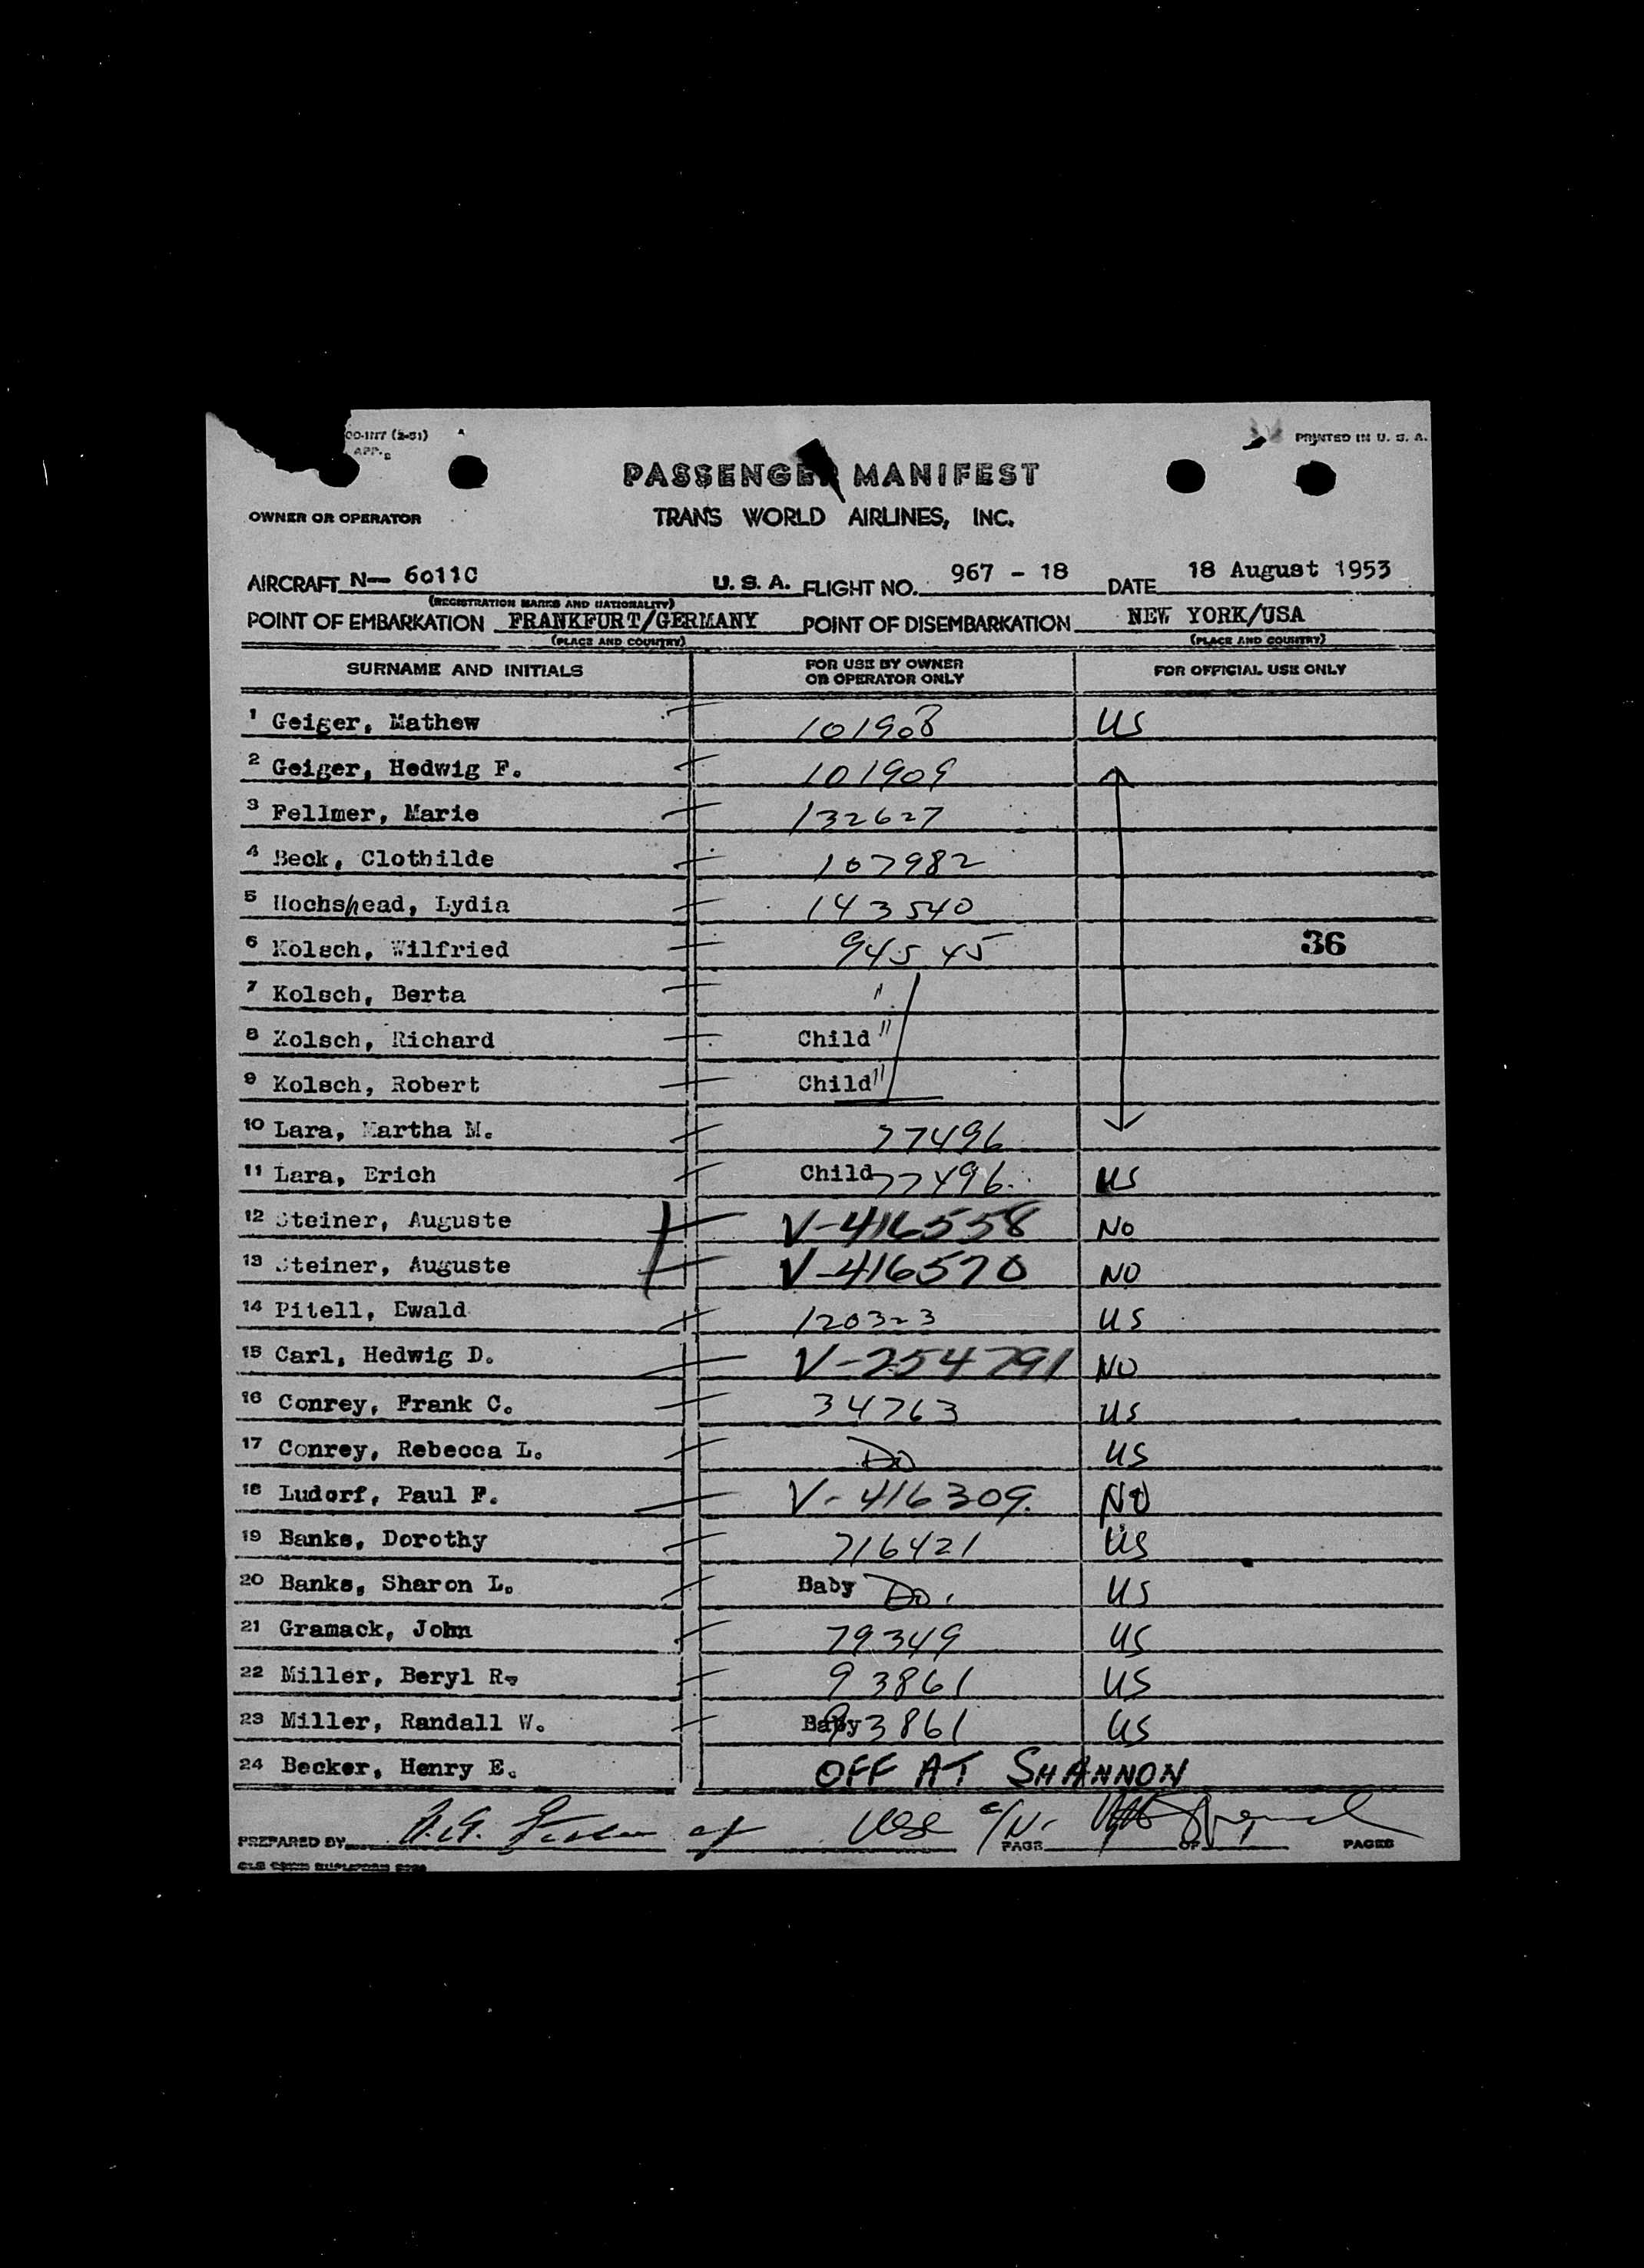 CO-1117 (2-51)
APP.
PRINTED IN U. S. A.
PASSENGER MANIFEST
OWNER OR OPERATOR
TRANS WORLD AIRLINES, INC.
AIRCRAFT N— 6011C U. S. A. FLIGHT NO. 967 - 18 DATE 18 August 1953
(REGISTRATION MARKS AND NATIONALITY)
POINT OF EMBARKATION FRANKFURT/GERMANY POINT OF DISEMBARKATION NEW YORK/USA
(PLACE AND COUNTRY) (PLACE AND COUNTRY)
SURNAME AND INITIALS FOR USE BY OWNER OR OPERATOR ONLY FOR OFFICIAL USE ONLY
1 Geiger, Mathew 101908 US
2 Geiger, Hedwig F. 101909
3 Fellmer, Marie 132627
4 Beck, Clothilde 107982
5 Hochshead, Lydia 143540
6 Kolsch, Wilfried 94545 36
7 Kolsch, Berta "
8 Kolsch, Richard Child "
9 Kolsch, Robert Child "
10 Lara, Martha M. 77496
11 Lara, Erich Child 77496 US
12 Steiner, Auguste V-416558 NO
13 Steiner, Auguste V-416570 NO
14 Pitell, Ewald 120323 US
15 Carl, Hedwig D. V-254791 NO
16 Conrey, Frank C. 34763 US
17 Conrey, Rebecca L. Do US
18 Ludorf, Paul F. V-416309 NO
19 Banks, Dorothy 716421 US
20 Banks, Sharon L. Baby Do. US
21 Gramack, John 79349 US
22 Miller, Beryl R. 93861 US
23 Miller, Randall W. Baby 93861 US
24 Becker, Henry E. OFF AT SHANNON
PREPARED BY PAGE OF PAGES